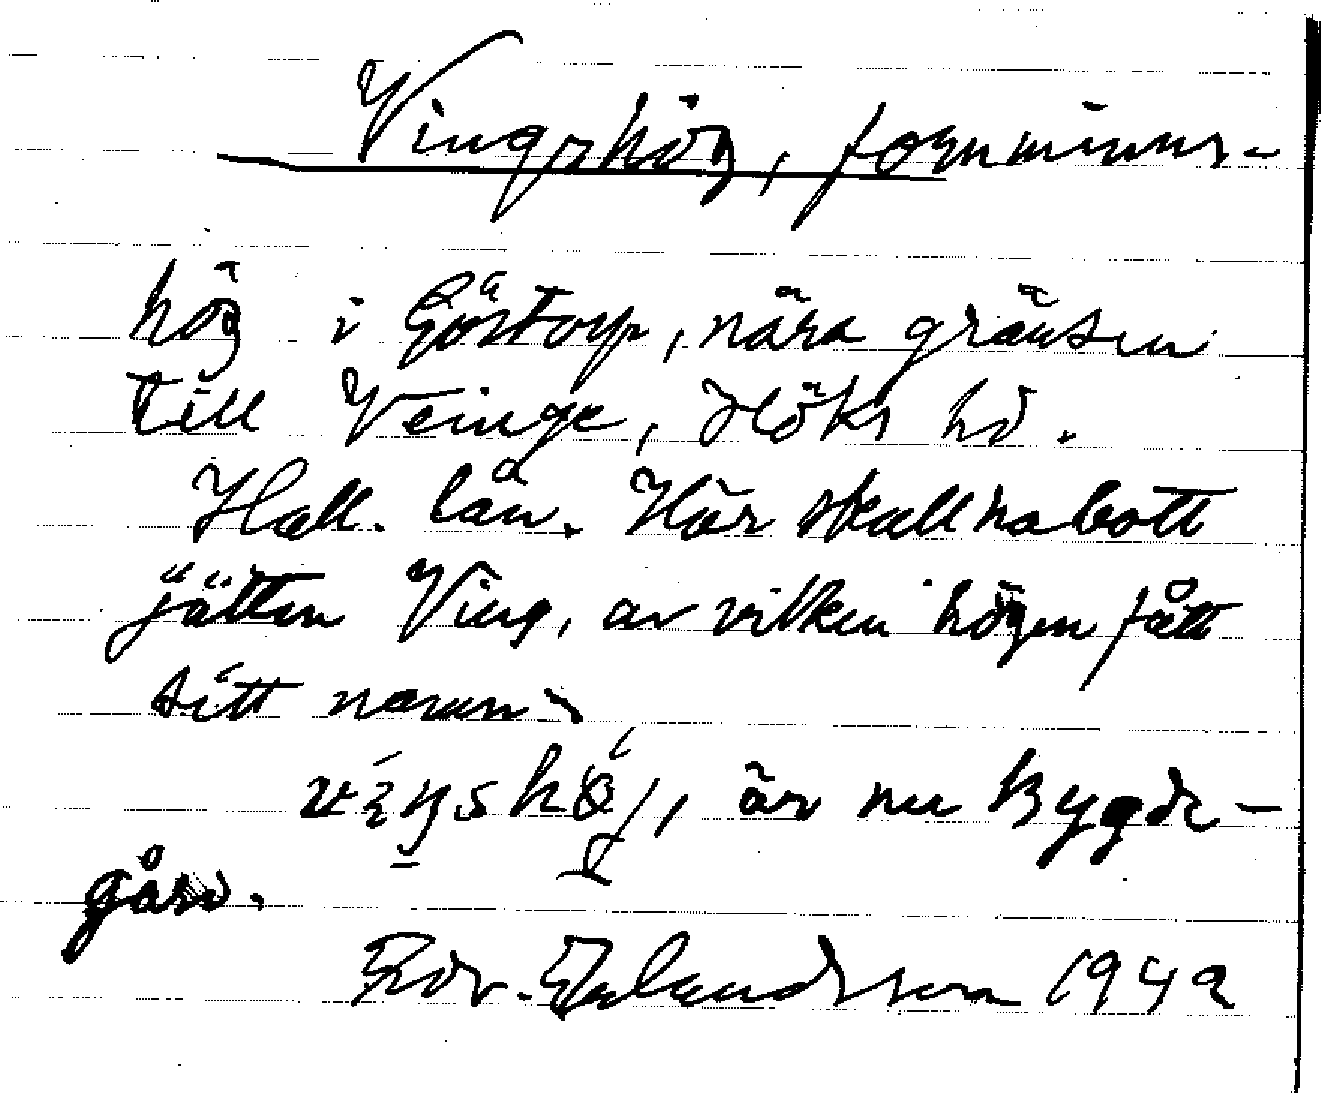 Vingshög, fornminns-
hög i Göstorp, nära gränsen
till Veinge, Höks hd.
Hall. län. Här skall ha bott
jätten Ving, av vilken högen fått
sitt namn.
är nu Bygde-
gård.
Edv. Erlandsson 1942